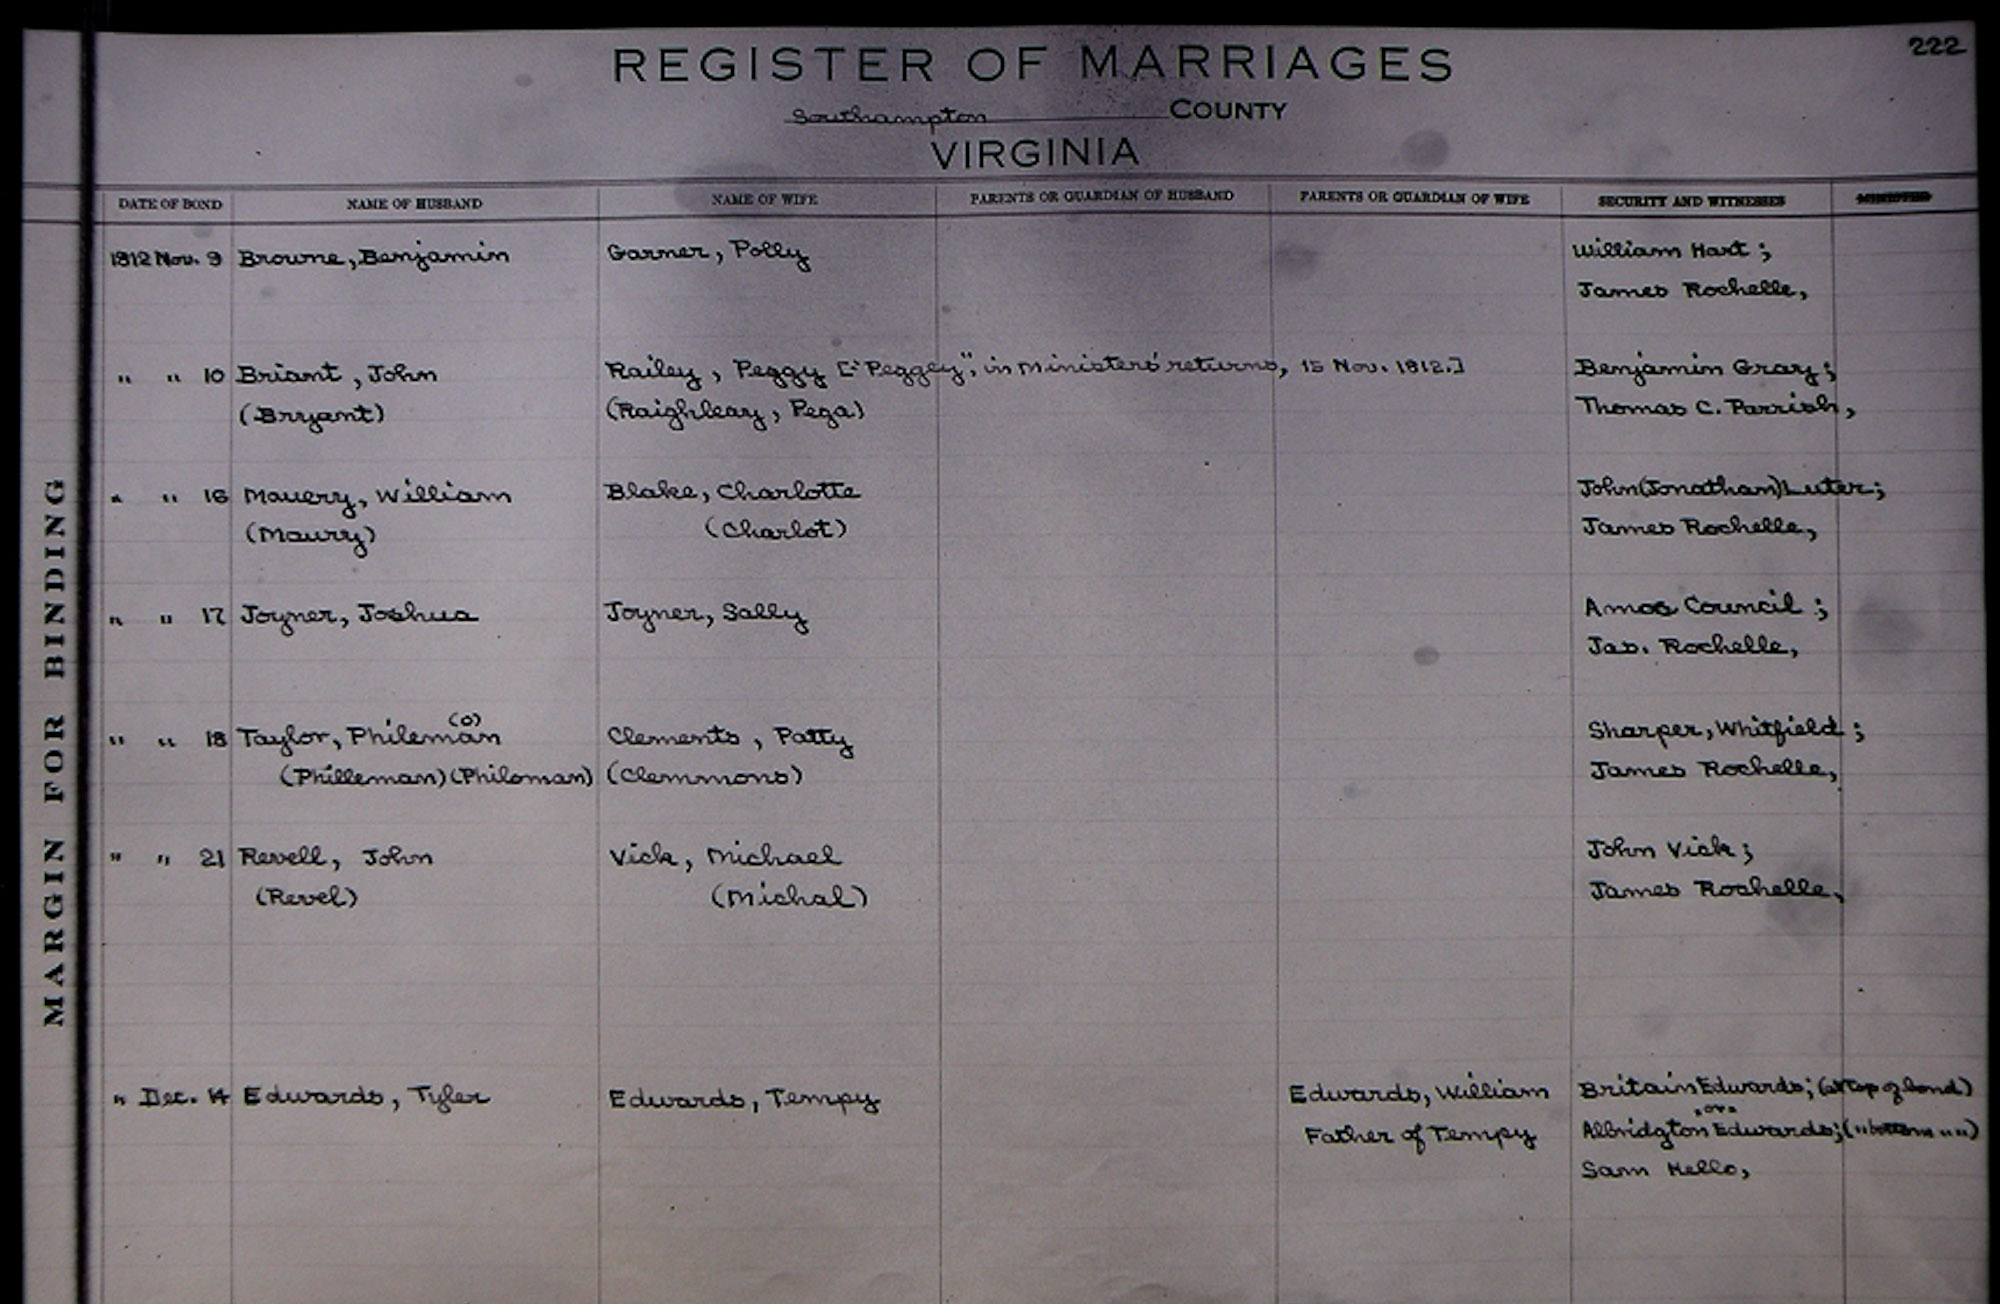 222
REGISTER OF MARRIAGES
Southampton COUNTY
VIRGINIA
MARGIN FOR BINDING
DATE OF BOND NAME OF HUSBAND NAME OF WIFE PARENTS OR GUARDIAN OF HUSBAND PARENTS OR GUARDIAN OF WIFE SECURITY AND WITNESSES
1812 Nov. 9 Browne, Benjamin Garner, Polly William Hart;
James Rochelle,
" " 10 Briant, John Railey, Peggy ["Peggey", in Ministers' returns, 15 Nov. 1812.] Benjamin Gray;
(Bryant) (Raighleay, Pega) Thomas C. Parrish,
" " 16 Mauery, William Blake, Charlotte John (Jonathan) Luter;
(Maury) (Charlot) James Rochelle,
" " 17 Joyner, Joshua Joyner, Sally Amos Council;
Jas. Rochelle,
(o)
" " 18 Taylor, Phileman Clements, Patty Sharper, Whitfield;
(Philleman) (Philoman) (Clemmons) James Rochelle,
" " 21 Revell, John Vick, Michael John Vick;
(Revel) (Michal) James Rochelle,
" Dec. 14 Edwards, Tyler Edwards, Tempy Edwards, William Britain Edwards; (at top of bond)
"or"
Father of Tempy Albridgton Edwards; (" bottom " ")
Sam Kello,